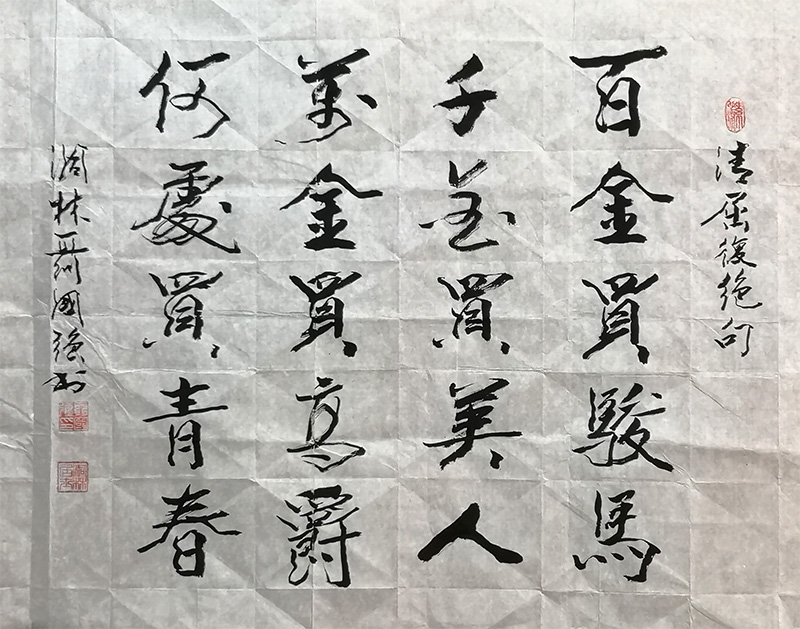 清屈復絶句
百金買駿馬
千金買美人
萬金買高爵
何處買青春
聶國強書